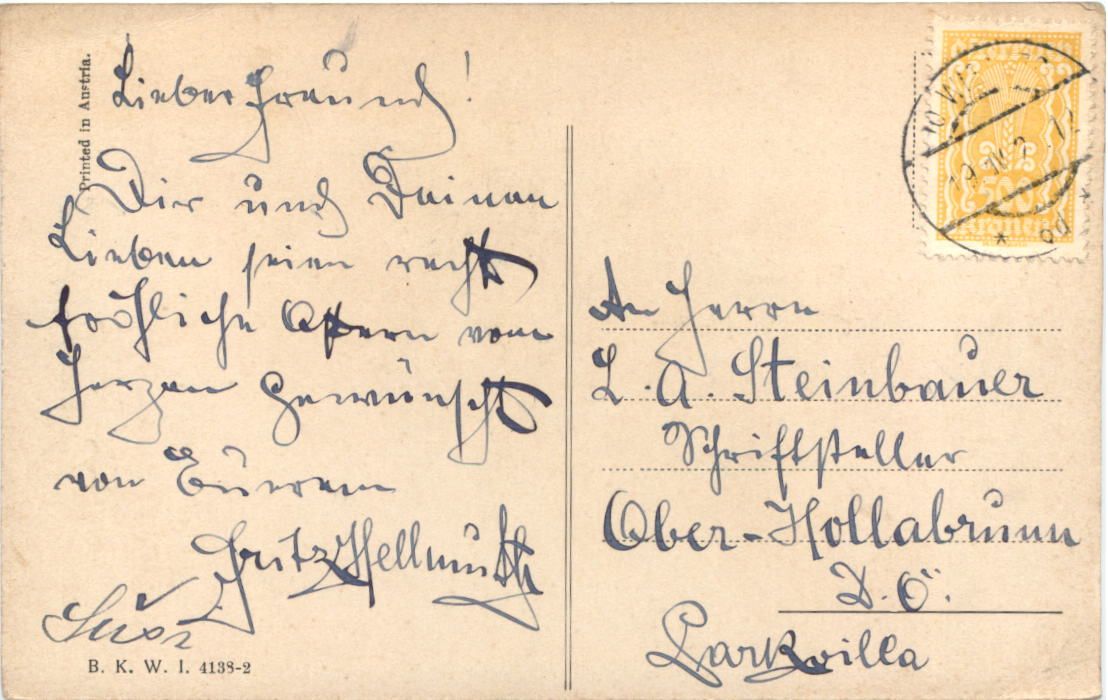 Printed in Austria.
Lieber Freund!
Dir und Deinen
Lieben seien recht
fröhliche Ostern vom
Herzen gewünscht
von Euerem
Fritz Hellmuth
B. K. W. I. 4138-2
500
Kronen
An Herrn
L. A. Steinbauer
Schriftsteller
Ober-Hollabrunn
N. Ö.
Parkvilla